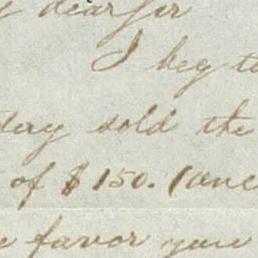 dear Sir
I beg to
sold the
of $150. (one
favor you